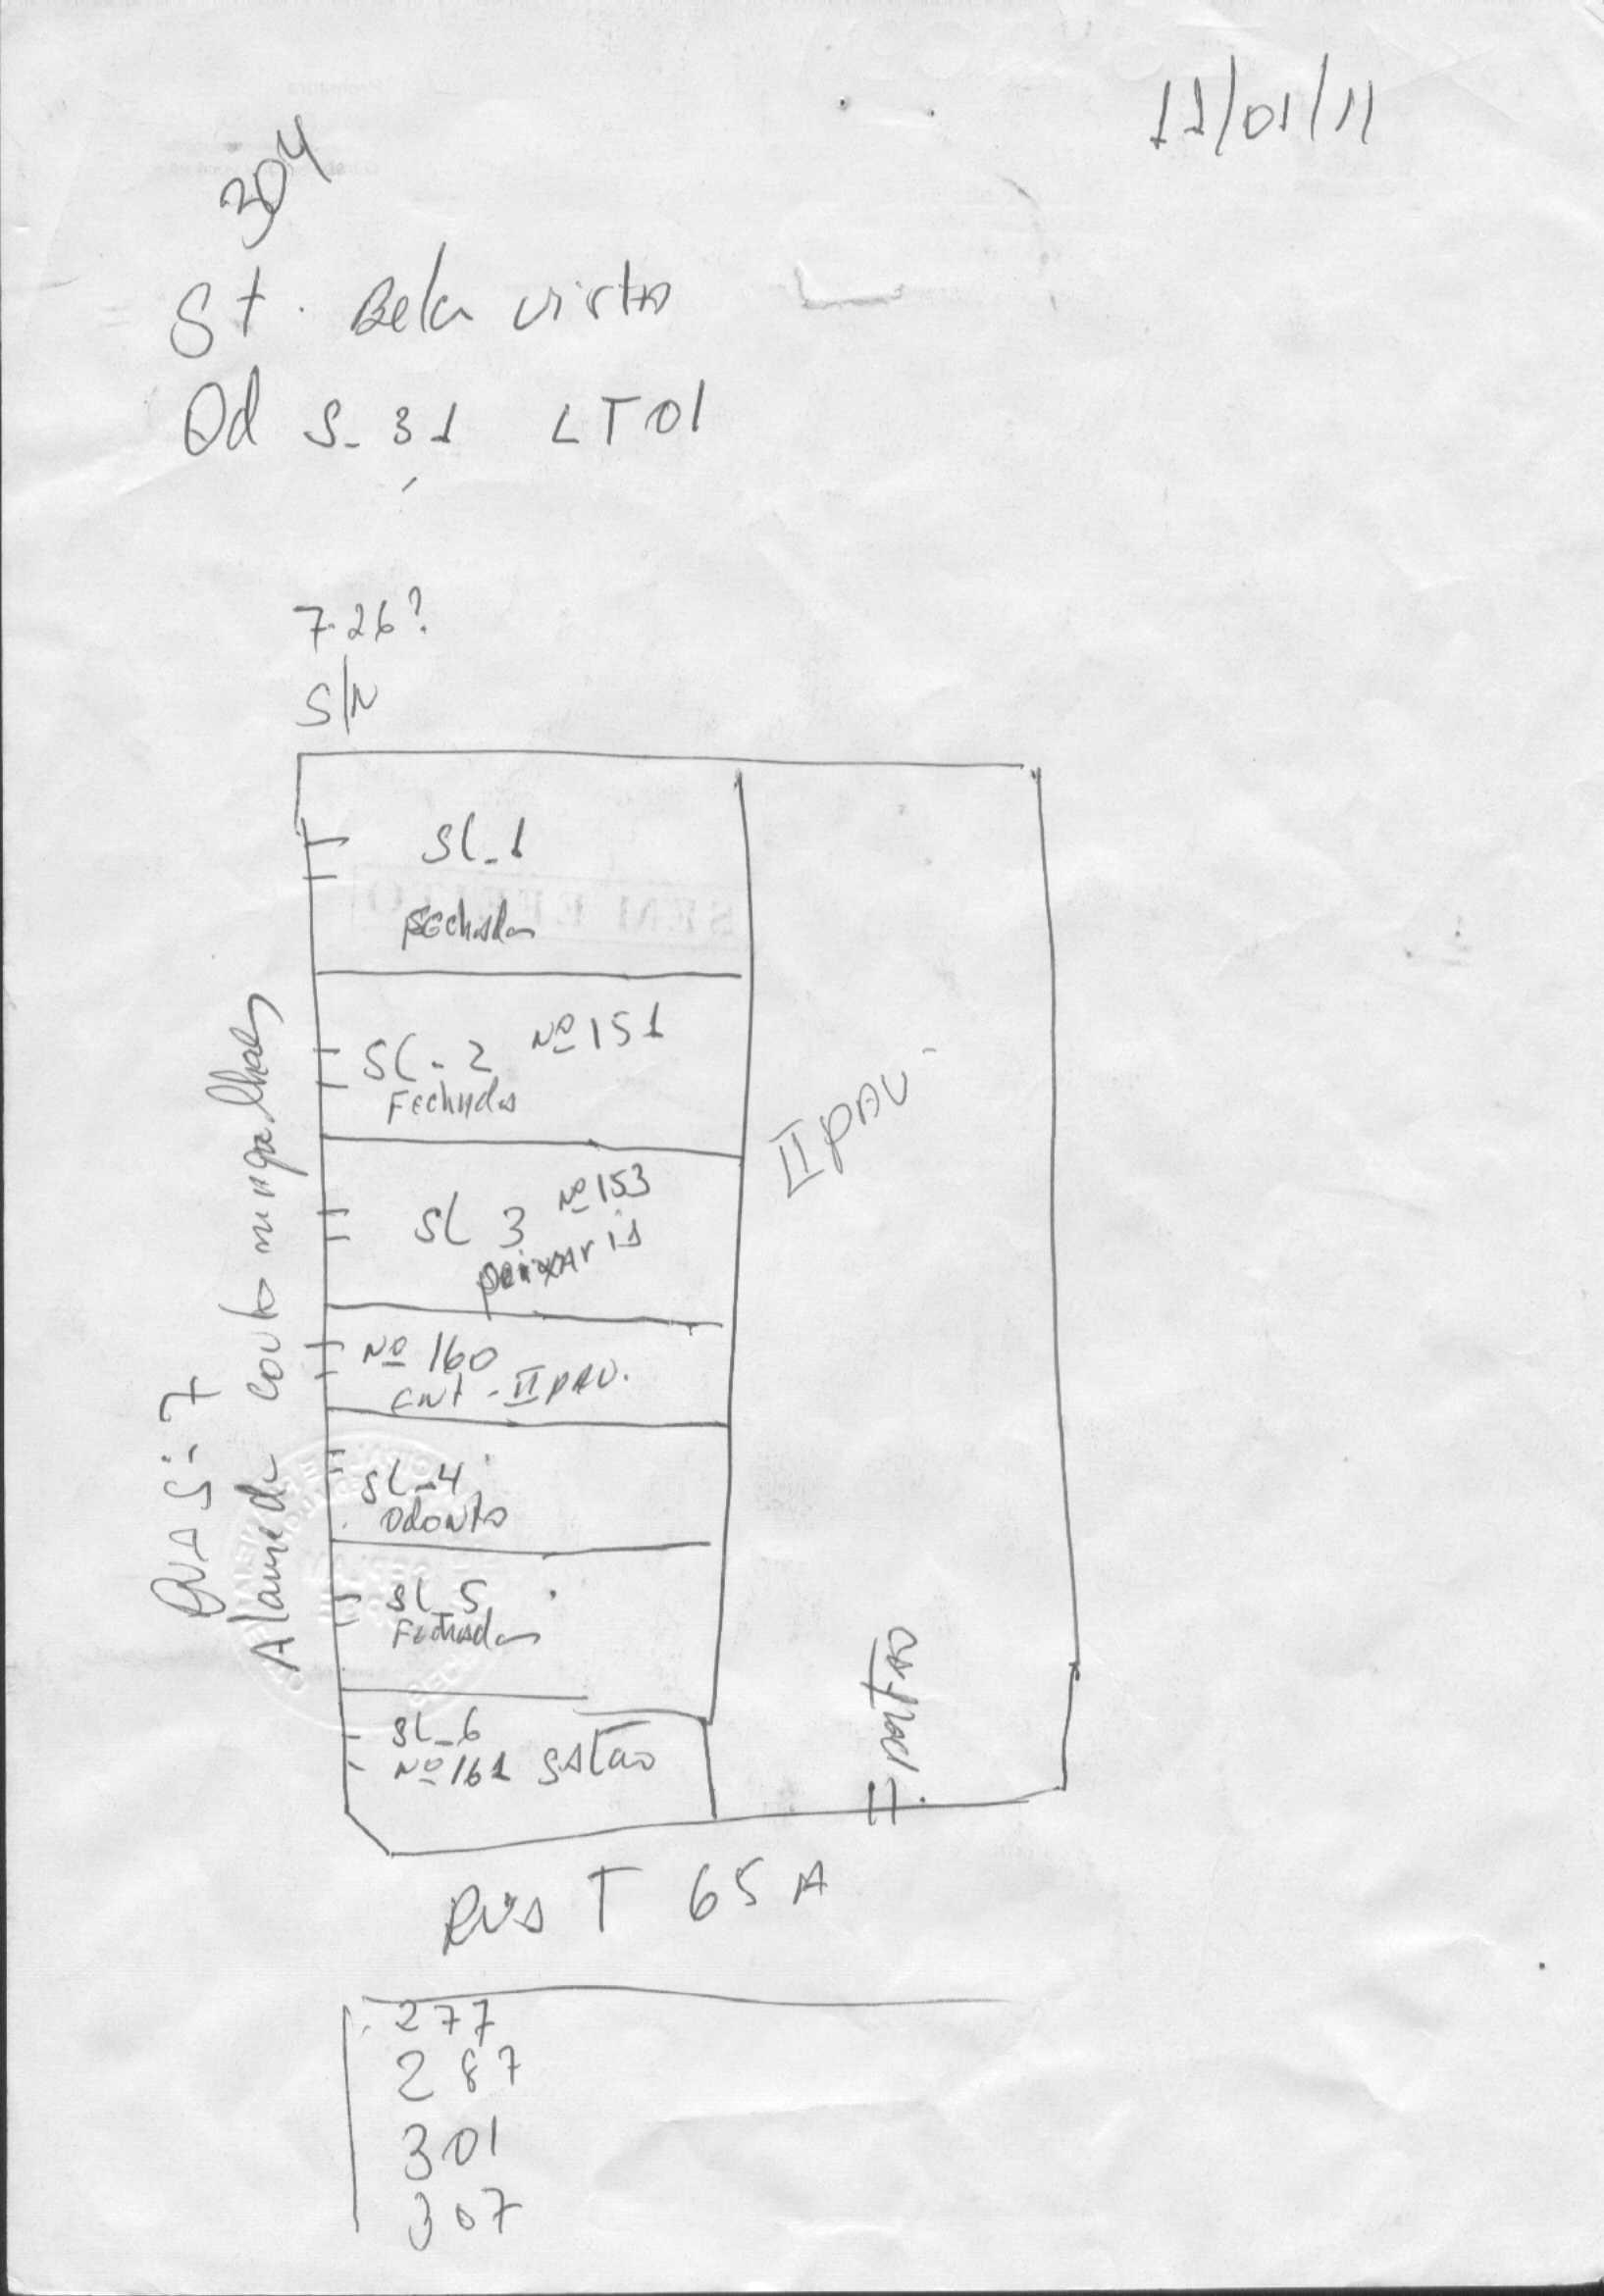 11/01/11
304
St. Bela vista
Qd S-31 LT01
7.26?
S/N
SL-1
Fechada
SL-2 Nº 151
Fechada
SL 3 Nº 153
peixaria
Nº 160
ENT - II PAV.
SL-4
Odonto
SL-5
Fechada
SL-6
Nº 161 SALÃO
II PAV.
PORTÃO
RUA S-7
Alameda couto magalhaes
RUA T 65 A
277
287
301
307
SEM EFEITO